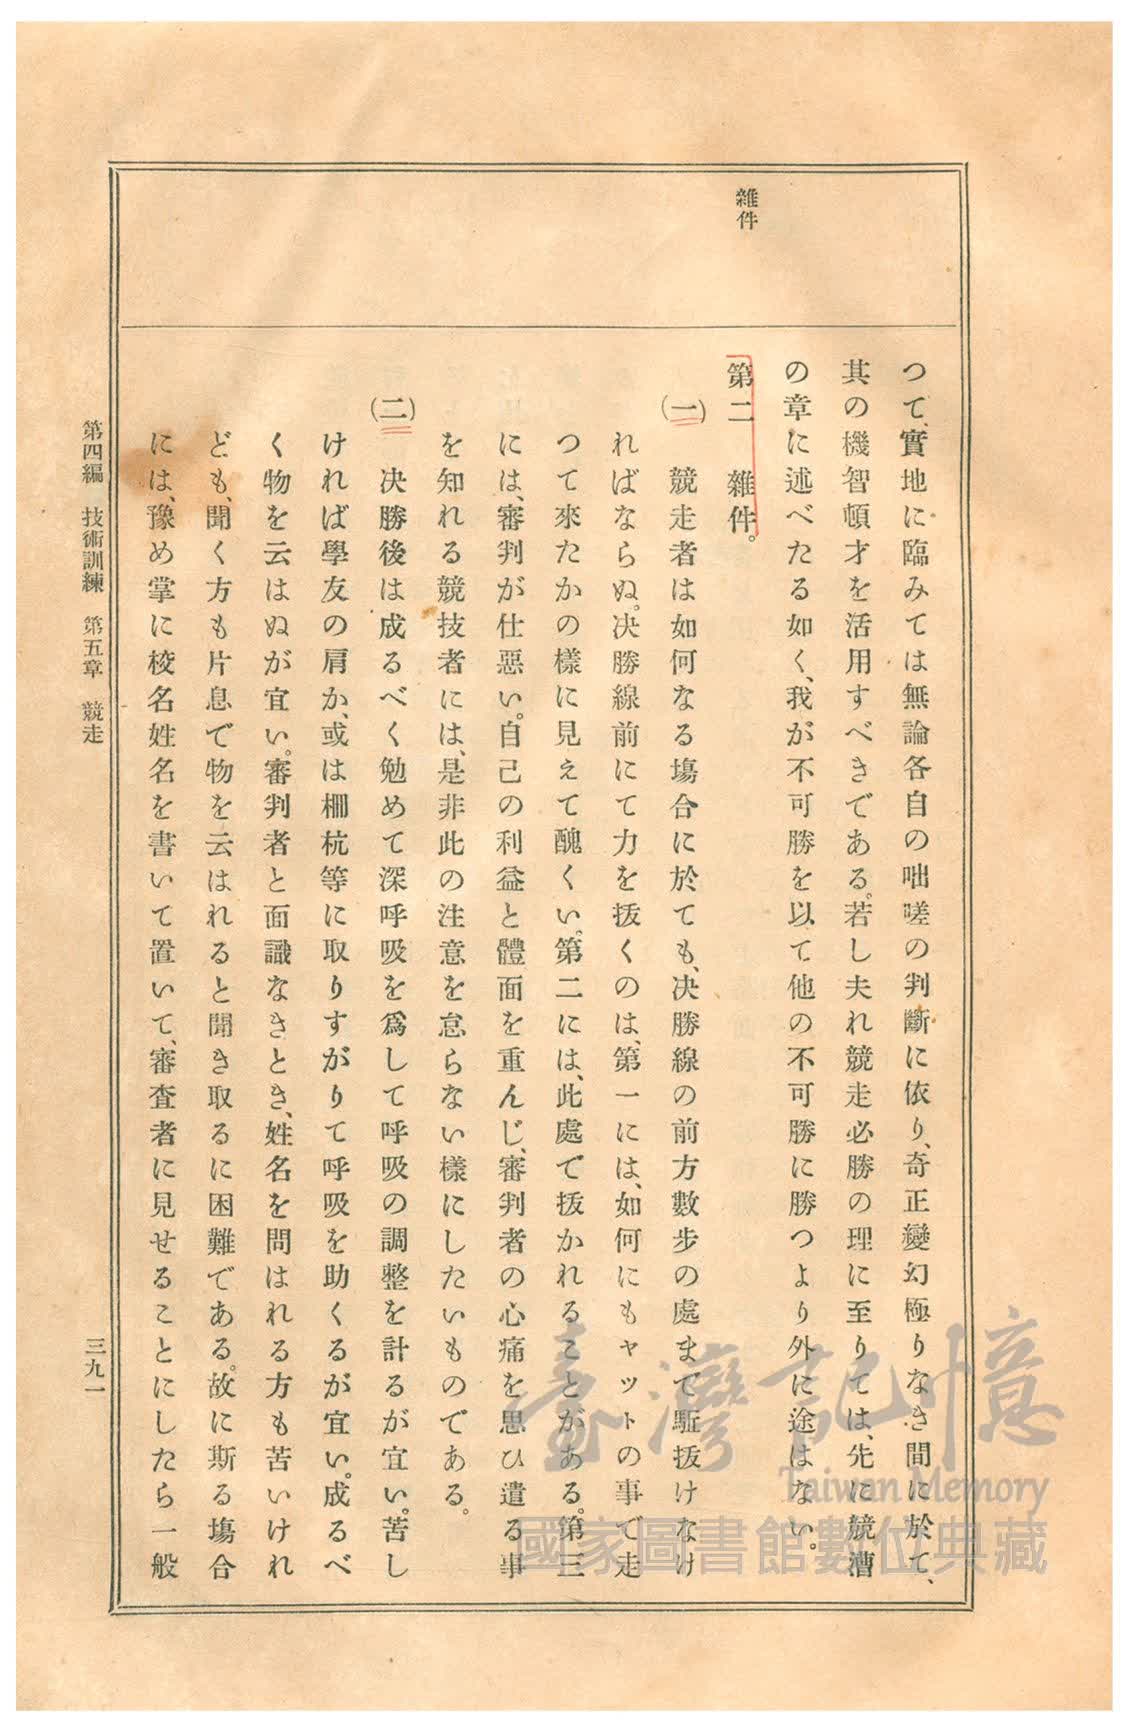 雜件
つて、實地に臨みては無論各自の咄嗟の判斷に依り、奇正變幻極りなき間に於て、
其の機智頓才を活用すべきである。若し夫れ競走必勝の理に至りては、先に競漕
の章に述べたる如く、我が不可勝を以て他の不可勝に勝つより外に途はない。
第二 雜件。
(一) 競走者は如何なる塲合に於ても、决勝線の前方數步の處まで駈拔けなけ
ればならぬ。决勝線前にて力を拔くのは、第一には、如何にもヤットの事で走
つて來たかの樣に見えて醜くい。第二には、此處で拔かれることがある。第三
には、審判が仕惡い。自己の利益と體面を重んじ、審判者の心痛を思ひ遣る事
を知れる競技者には、是非此の注意を怠らない樣にしたいものである。
(二) 决勝後は成るべく勉めて深呼吸を爲して呼吸の調整を計るが宜い。苦し
ければ學友の肩か、或は柵杭等に取りすがりて呼吸を助くるが宜い。成るべ
く物を云はぬが宜い。審判者と面識なきとき、姓名を問はれる方も苦いけれ
ども、聞く方も片息で物を云はれると聞き取るに困難である。故に斯る塲合
には、豫め掌に校名姓名を書いて置いて、審査者に見せることにしたら一般
第四編 技術訓練 第五章 競走
三九一
臺灣記憶
Taiwan Memory
國家圖書館數位典藏